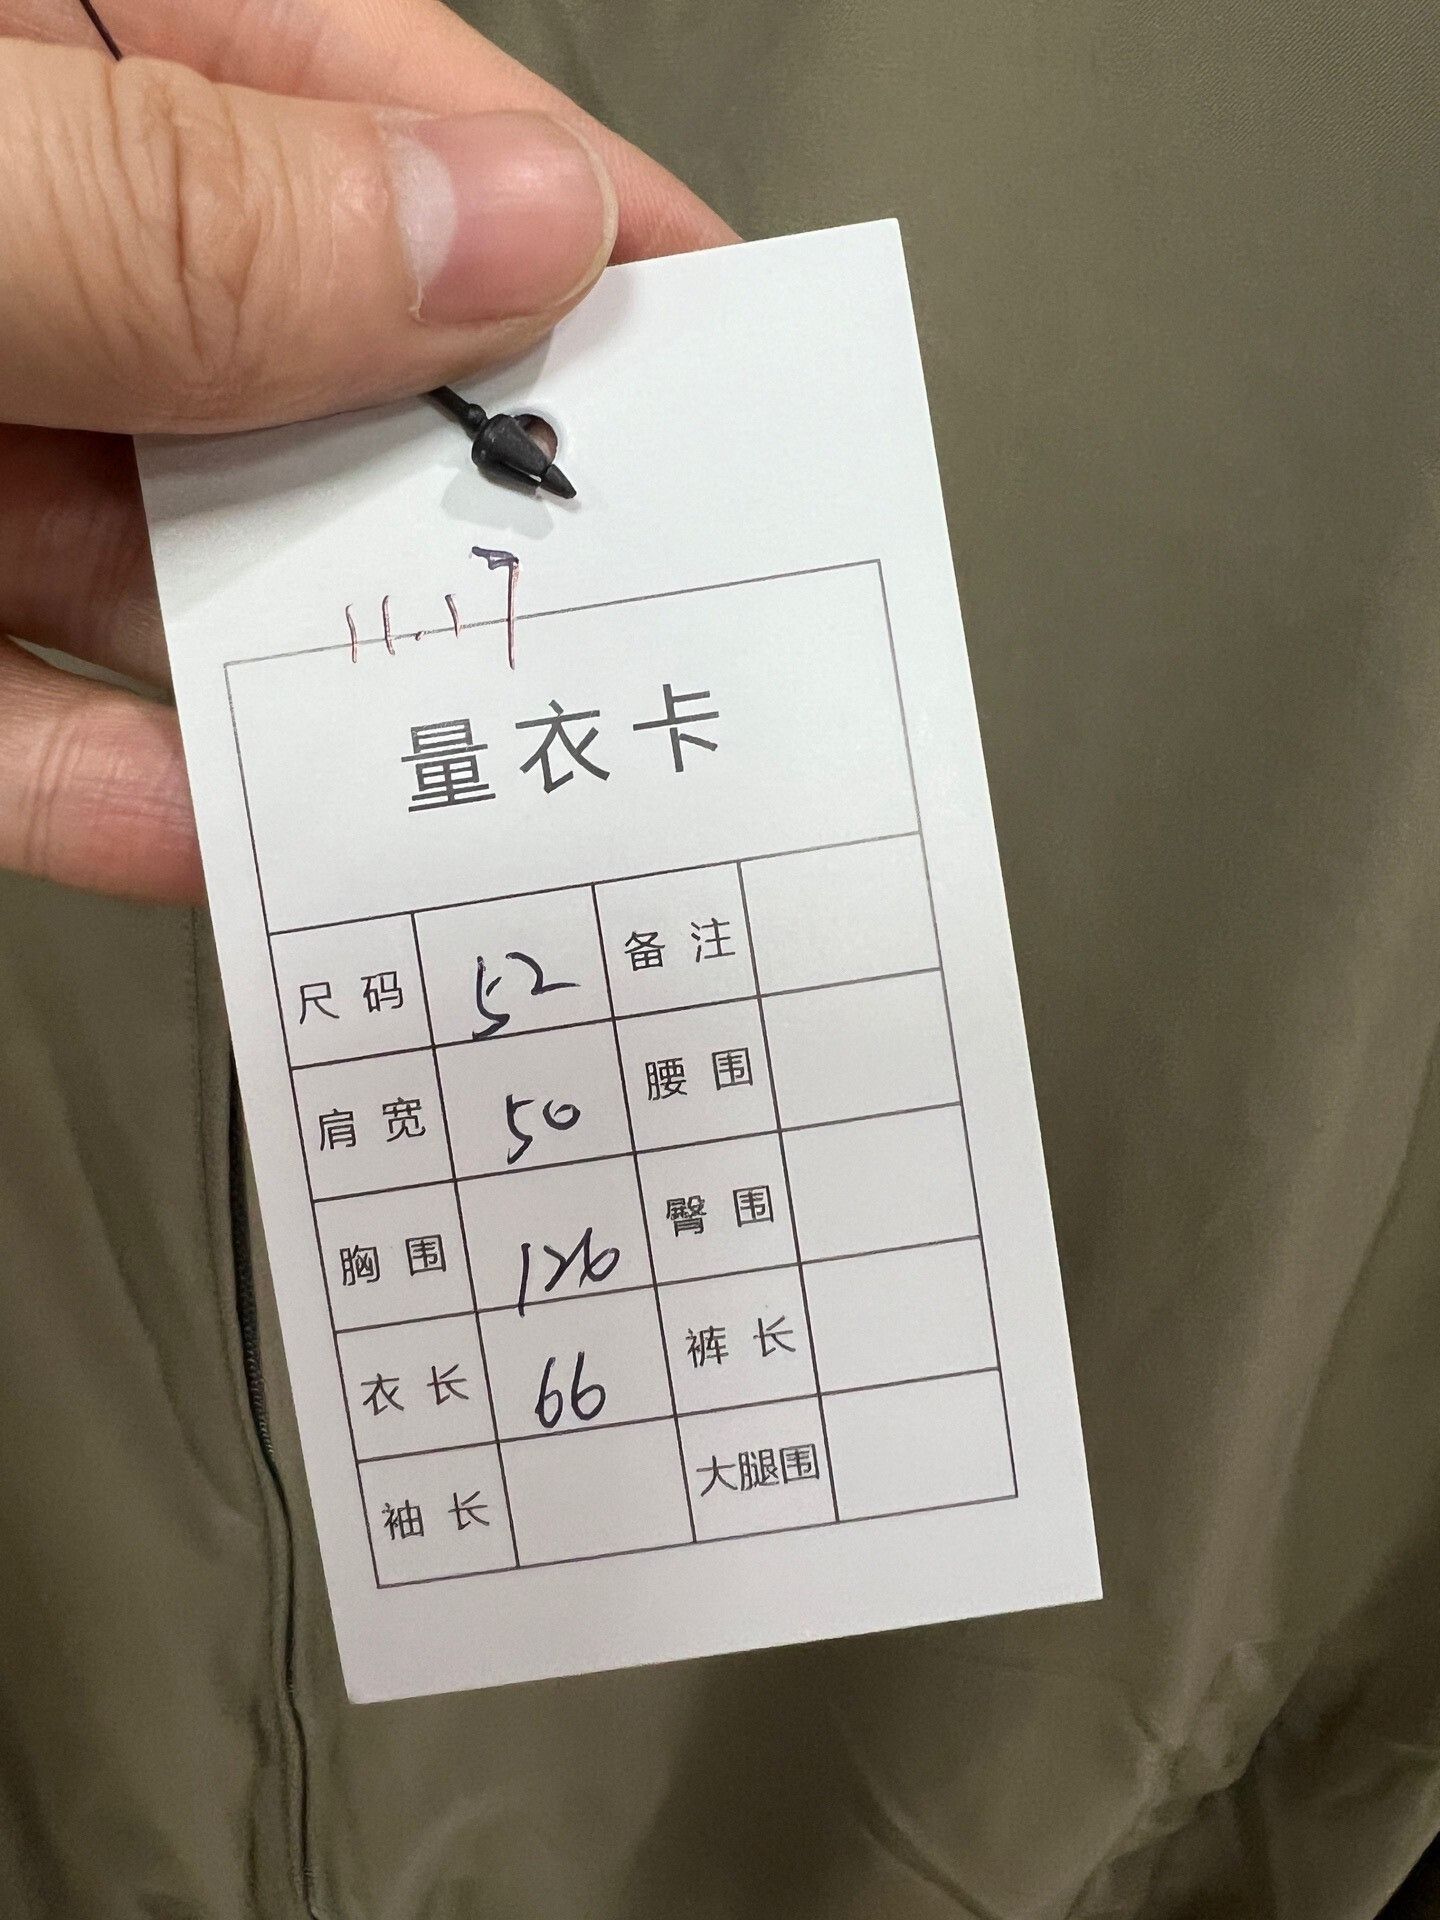 11.17
量衣卡
尺码 52 备注
肩宽 50 腰围
胸围 126 臀围
衣长 66 裤长
袖长 大腿围